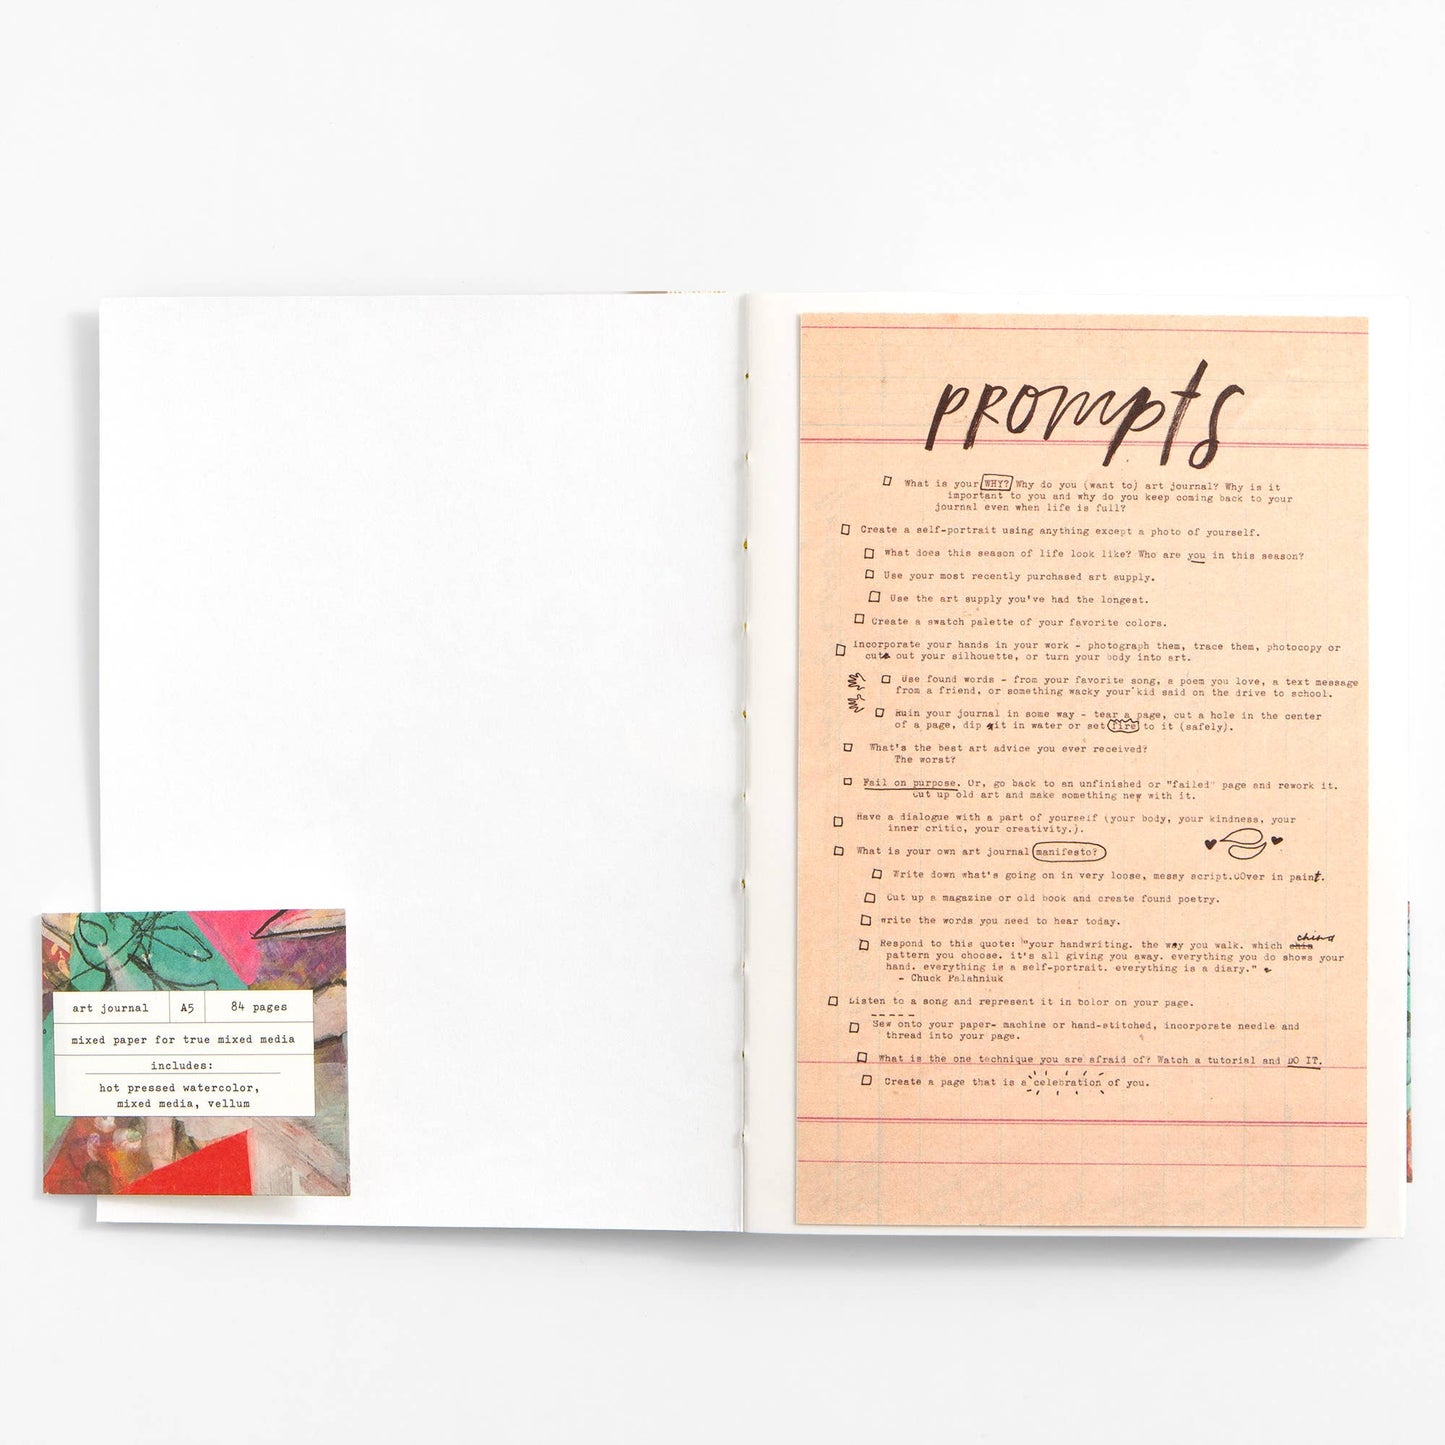 prompts
What is your WHY? Why do you (want to) art journal? Why is it
important to you and why do you keep coming back to your
journal even when life is full?
Create a self-portrait using anything except a photo of yourself.
What does this season of life look like? Who are you in this season?
Use your most recently purchased art supply.
Use the art supply you've had the longest.
Create a swatch palette of your favorite colors.
Incorporate your hands in your work - photograph them, trace them, photocopy or
cut out your silhouette, or turn your body into art.
Use found words - from your favorite song, a poem you love, a text message
from a friend, or something wacky your kid said on the drive to school.
Ruin your journal in some way - tear a page, cut a hole in the center
of a page, dip it in water or set fire to it (safely).
What's the best art advice you ever received?
The worst?
Fail on purpose. Or, go back to an unfinished or "failed" page and rework it.
Cut up old art and make something new with it.
Have a dialogue with a part of yourself (your body, your kindness, your
inner critic, your creativity.).
What is your own art journal manifesto?
Write down what's going on in very loose, messy script.COver in paint.
Cut up a magazine or old book and create found poetry.
Write the words you need to hear today.
Respond to this quote: "your handwriting. the way you walk. which china
pattern you choose. it's all giving you away. everything you do shows your
hand. everything is a self-portrait. everything is a diary."
- Chuck Palahniuk
Listen to a song and represent it in bolor on your page.
Sew onto your paper- machine or hand-stitched, incorporate needle and
thread into your page.
What is the one technique you are afraid of? Watch a tutorial and DO IT.
Create a page that is a celebration of you.
art journal A5 84 pages
mixed paper for true mixed media
includes:
hot pressed watercolor,
mixed media, vellum